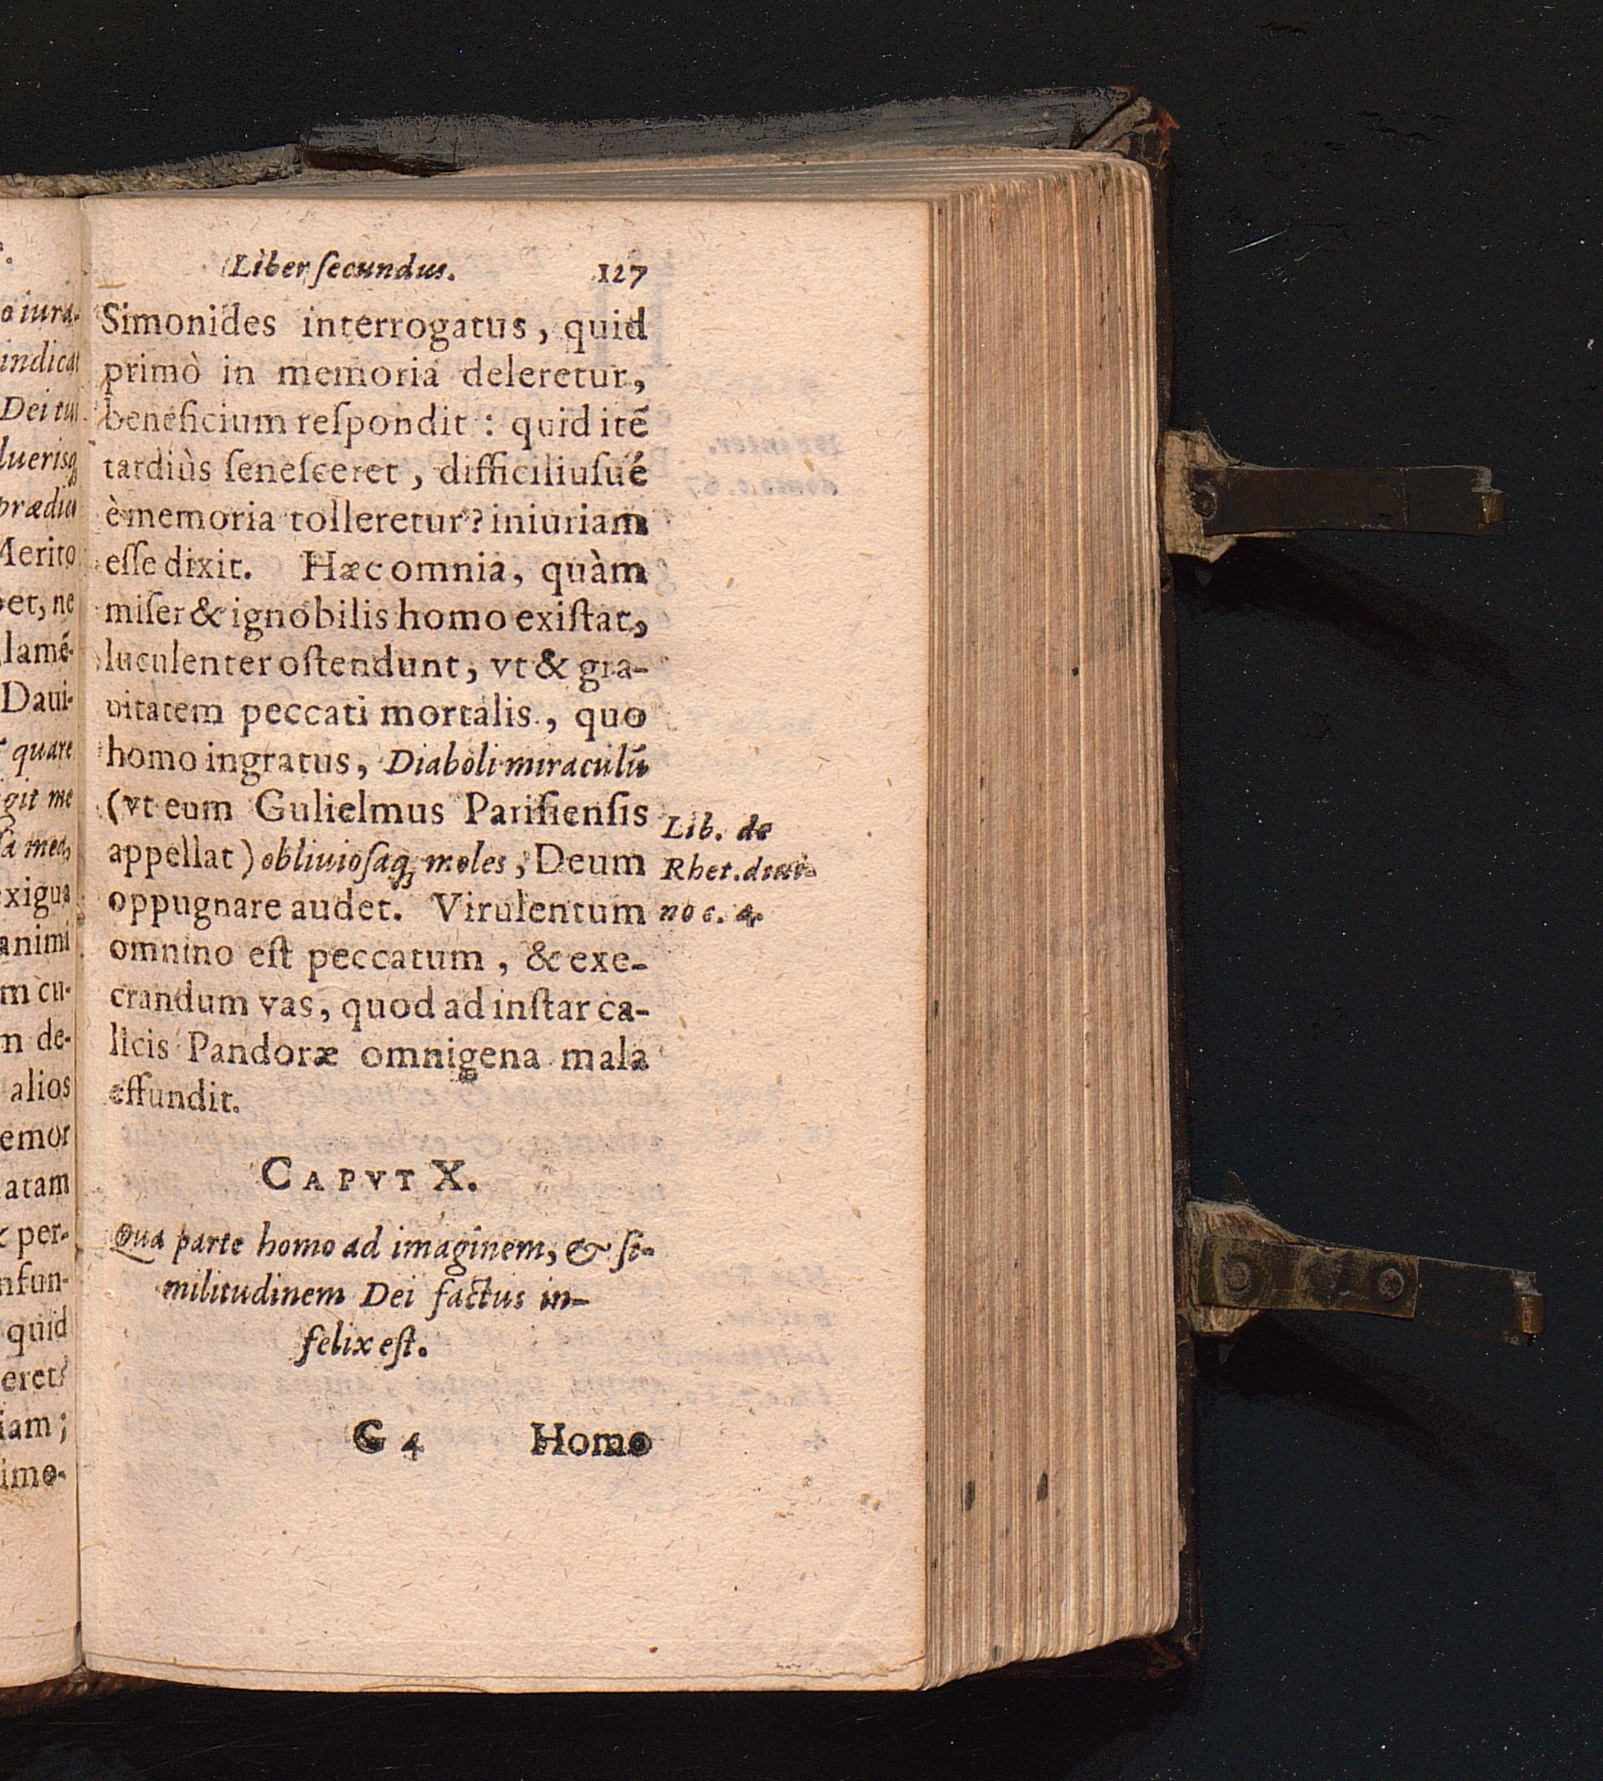 Liber ſecundus. 127
Simonides interrogatus, quid
primò in memoria deleretur,
beneficium reſpondit : quid itē
tardiùs ſeneſceret, difficiliuſué
è memoria tolleretur? iniuriam
eſſe dixit. Hæc omnia, quàm
miſer & ignobilis homo exiſtat,
luculenter oſtendunt, vt & gra-
uitatem peccati mortalis, quo
homo ingratus, Diaboli miraculū
(vt eum Gulielmus Pariſienſis
appellat) obliuioſaq; moles, Deum
oppugnare audet. Virulentum
omnino eſt peccatum, & exe-
crandum vas, quod ad inſtar ca-
licis Pandoræ omnigena mala
effundit.
Lib. de
Rhet. diui-
no c. 4.
CAPVT X.
Qua parte homo ad imaginem, & ſi-
militudinem Dei factus in-
felix eſt.
G 4 Homo
o iura-
indicat
Dei tui
luerisq;
prædic
Merito
et, ne
lamē-
Daui-
quare
git me
ſa mea,
exigua
animi
m cu-
m de-
alios
emor
atam
per-
nfun-
quid
eret?
iam;
imo-